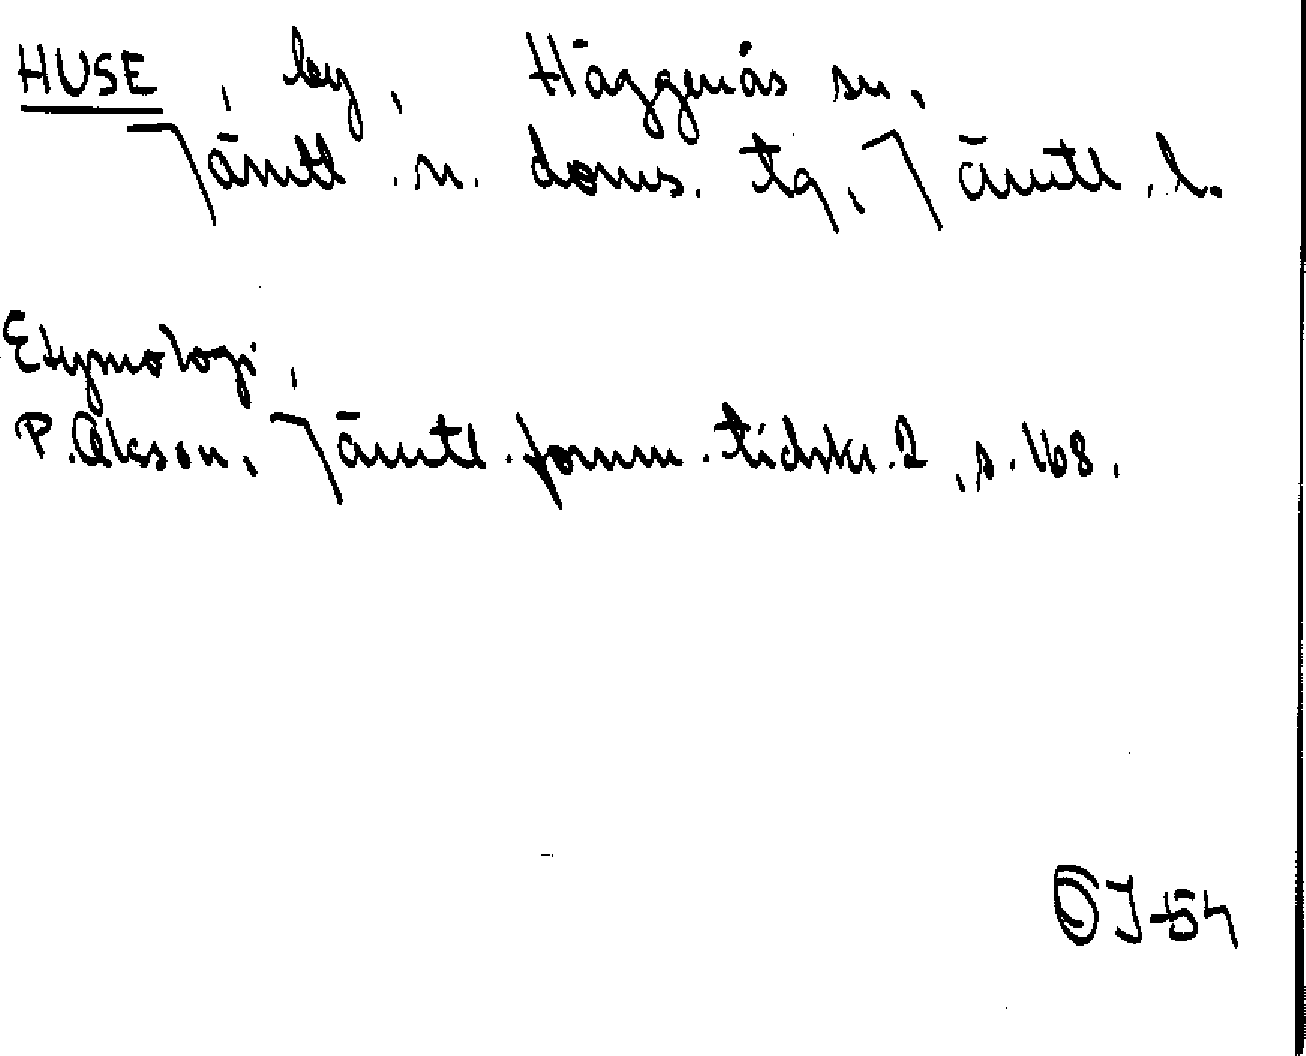 HUSE, by, Häggenås sn,
Jämtl. n. doms. tg, Jämtl. l.
Etymologi,
P. Olsson, Jämtl. fornm. tidskr. 2, s. 168.
J-54